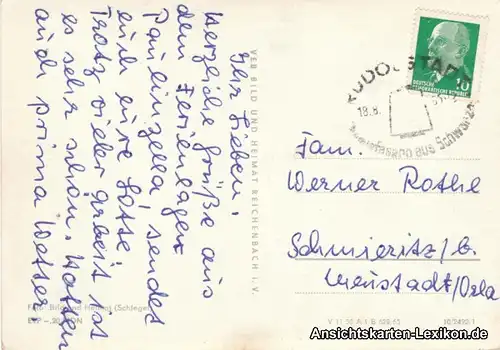 Ihr Lieben.
Herzliche Grüße aus
dem Ferienlager
Paulinzella sendet
euch eure Lotte
Trotz vieler Arbeit ist
es sehr schön. Hatten
auch prima Wetter.
VEB BILD UND HEIMAT REICHENBACH I. V.
Foto: Bild und Heimat (Schlegel)
DEUTSCHE
DEMOKRATISCHE REPUBLIK
10
RUDOLSTADT
18.8.
aus Schwarza
Fam.
Werner Rothe
Schmieritz/b.
Neustadt/Orla
10/2492-1
Ansichtskarten-Lexikon.de